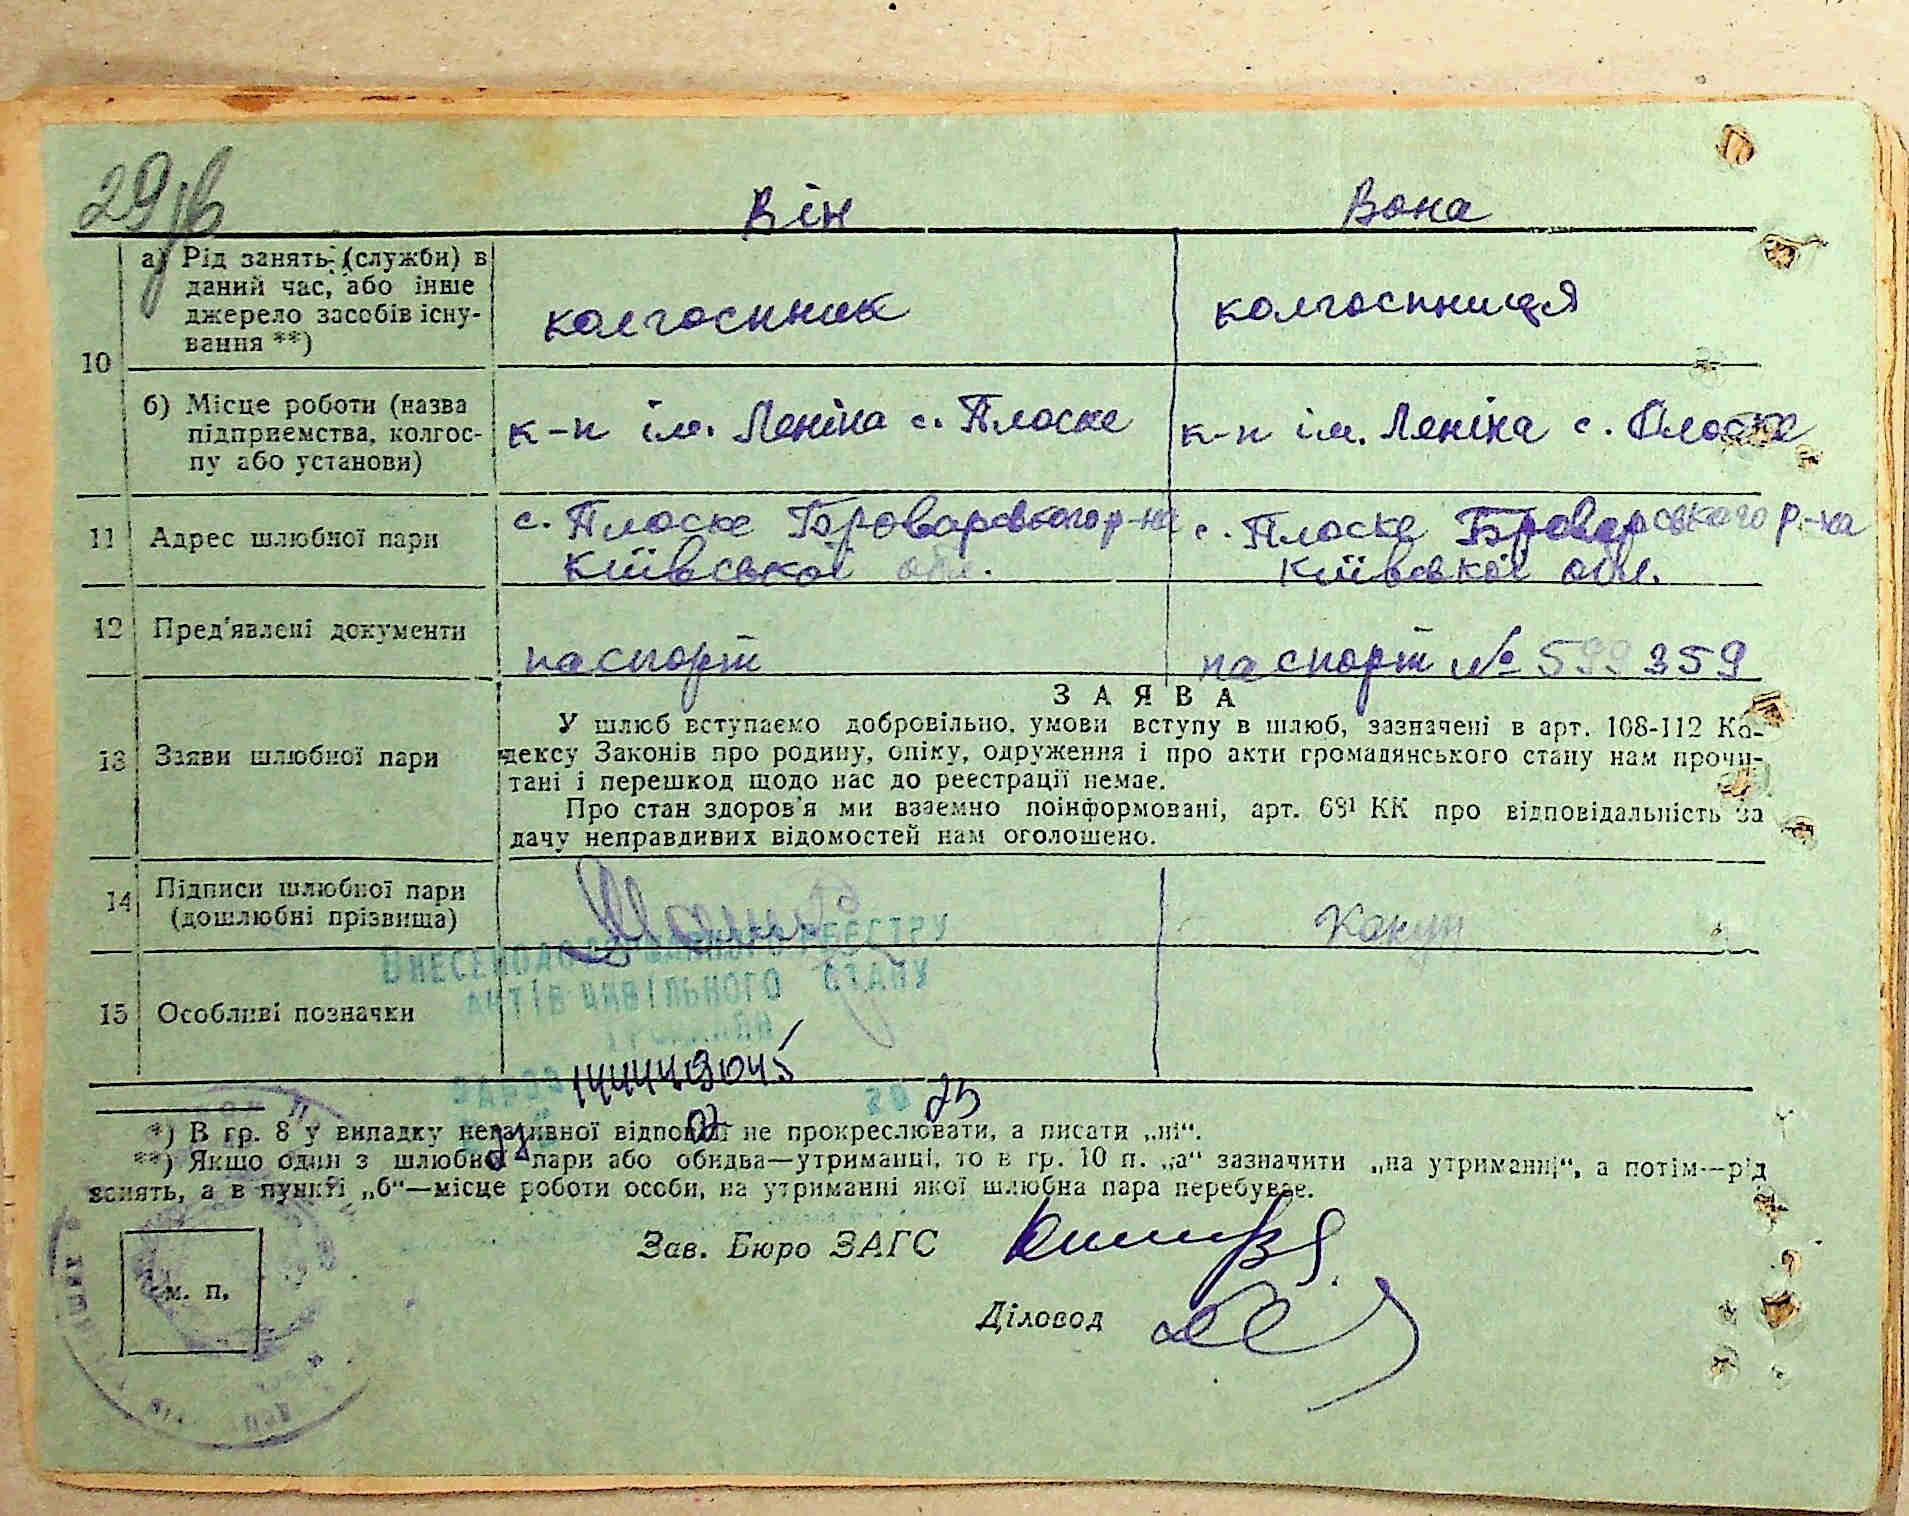 29зв
Він Вона
а) Рід занять (служби) в
даний час, або інше
джерело засобів існу-
вання **)
колгоспник колгоспниця
10
б) Місце роботи (назва
підприемства, колгос-
пу або установи)
к-п ім. Леніна с. Плоске к-п ім. Леніна с. Плоске
11 Адрес шлюбної пари
с. Плоске Броварського р-на с. Плоске Броварського р-на
Київської обл. Київської обл.
12 Пред'явлені документи
паспорт паспорт № 599359
ЗАЯВА
13 Заяви шлюбної пари
У шлюб вступаємо добровільно, умови вступу в шлюб, зазначені в арт. 108-112 Ко-
дексу Законів про родину, опіку, одруження і про акти громадянського стану нам прочи-
тані і перешкод щодо нас до реестрації немає.
Про стан здоров'я ми взаємно поінформовані, арт. 68¹ КК про відповідальність за
дачу неправдивих відомостей нам оголошено.
14 Підписи шлюбної пари
(дошлюбні прізвища)
Кокун
ВНЕСЕНО ДО ДЕРЖАВНОГО РЕЄСТРУ
АКТІВ ЦИВІЛЬНОГО СТАНУ
ГРОМАДЯН
15 Особливі позначки
20 25
*) В гр. 8 у випадку негативної відповіді не прокреслювати, а писати „ні“.
**) Якщо один з шлюбної пари або обидва—утриманці, то в гр. 10 п. „а“ зазначити „на утриманні“, а потім—рід
занять, а в пункті „б“—місце роботи особи, на утриманні якої шлюбна пара перебуває.
Зав. Бюро ЗАГС
м. п.
Діловод